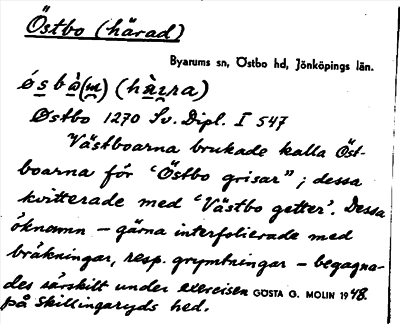 Östbo (härad)
Byarums sn, Östbo hd, Jönköpings län.
Østbo 1270 Sv. Dipl. I 547
Västboarna brukade kalla Öst-
boarna för "Östbo grisar"; dessa
kvitterade med 'Västbo getter'. Dessa
öknamn – gärna interfolierade med
bräkningar, resp. grymtningar – begagna-
des särskilt under exercisen GÖSTA G. MOLIN 1948.
på Skillingaryds hed.